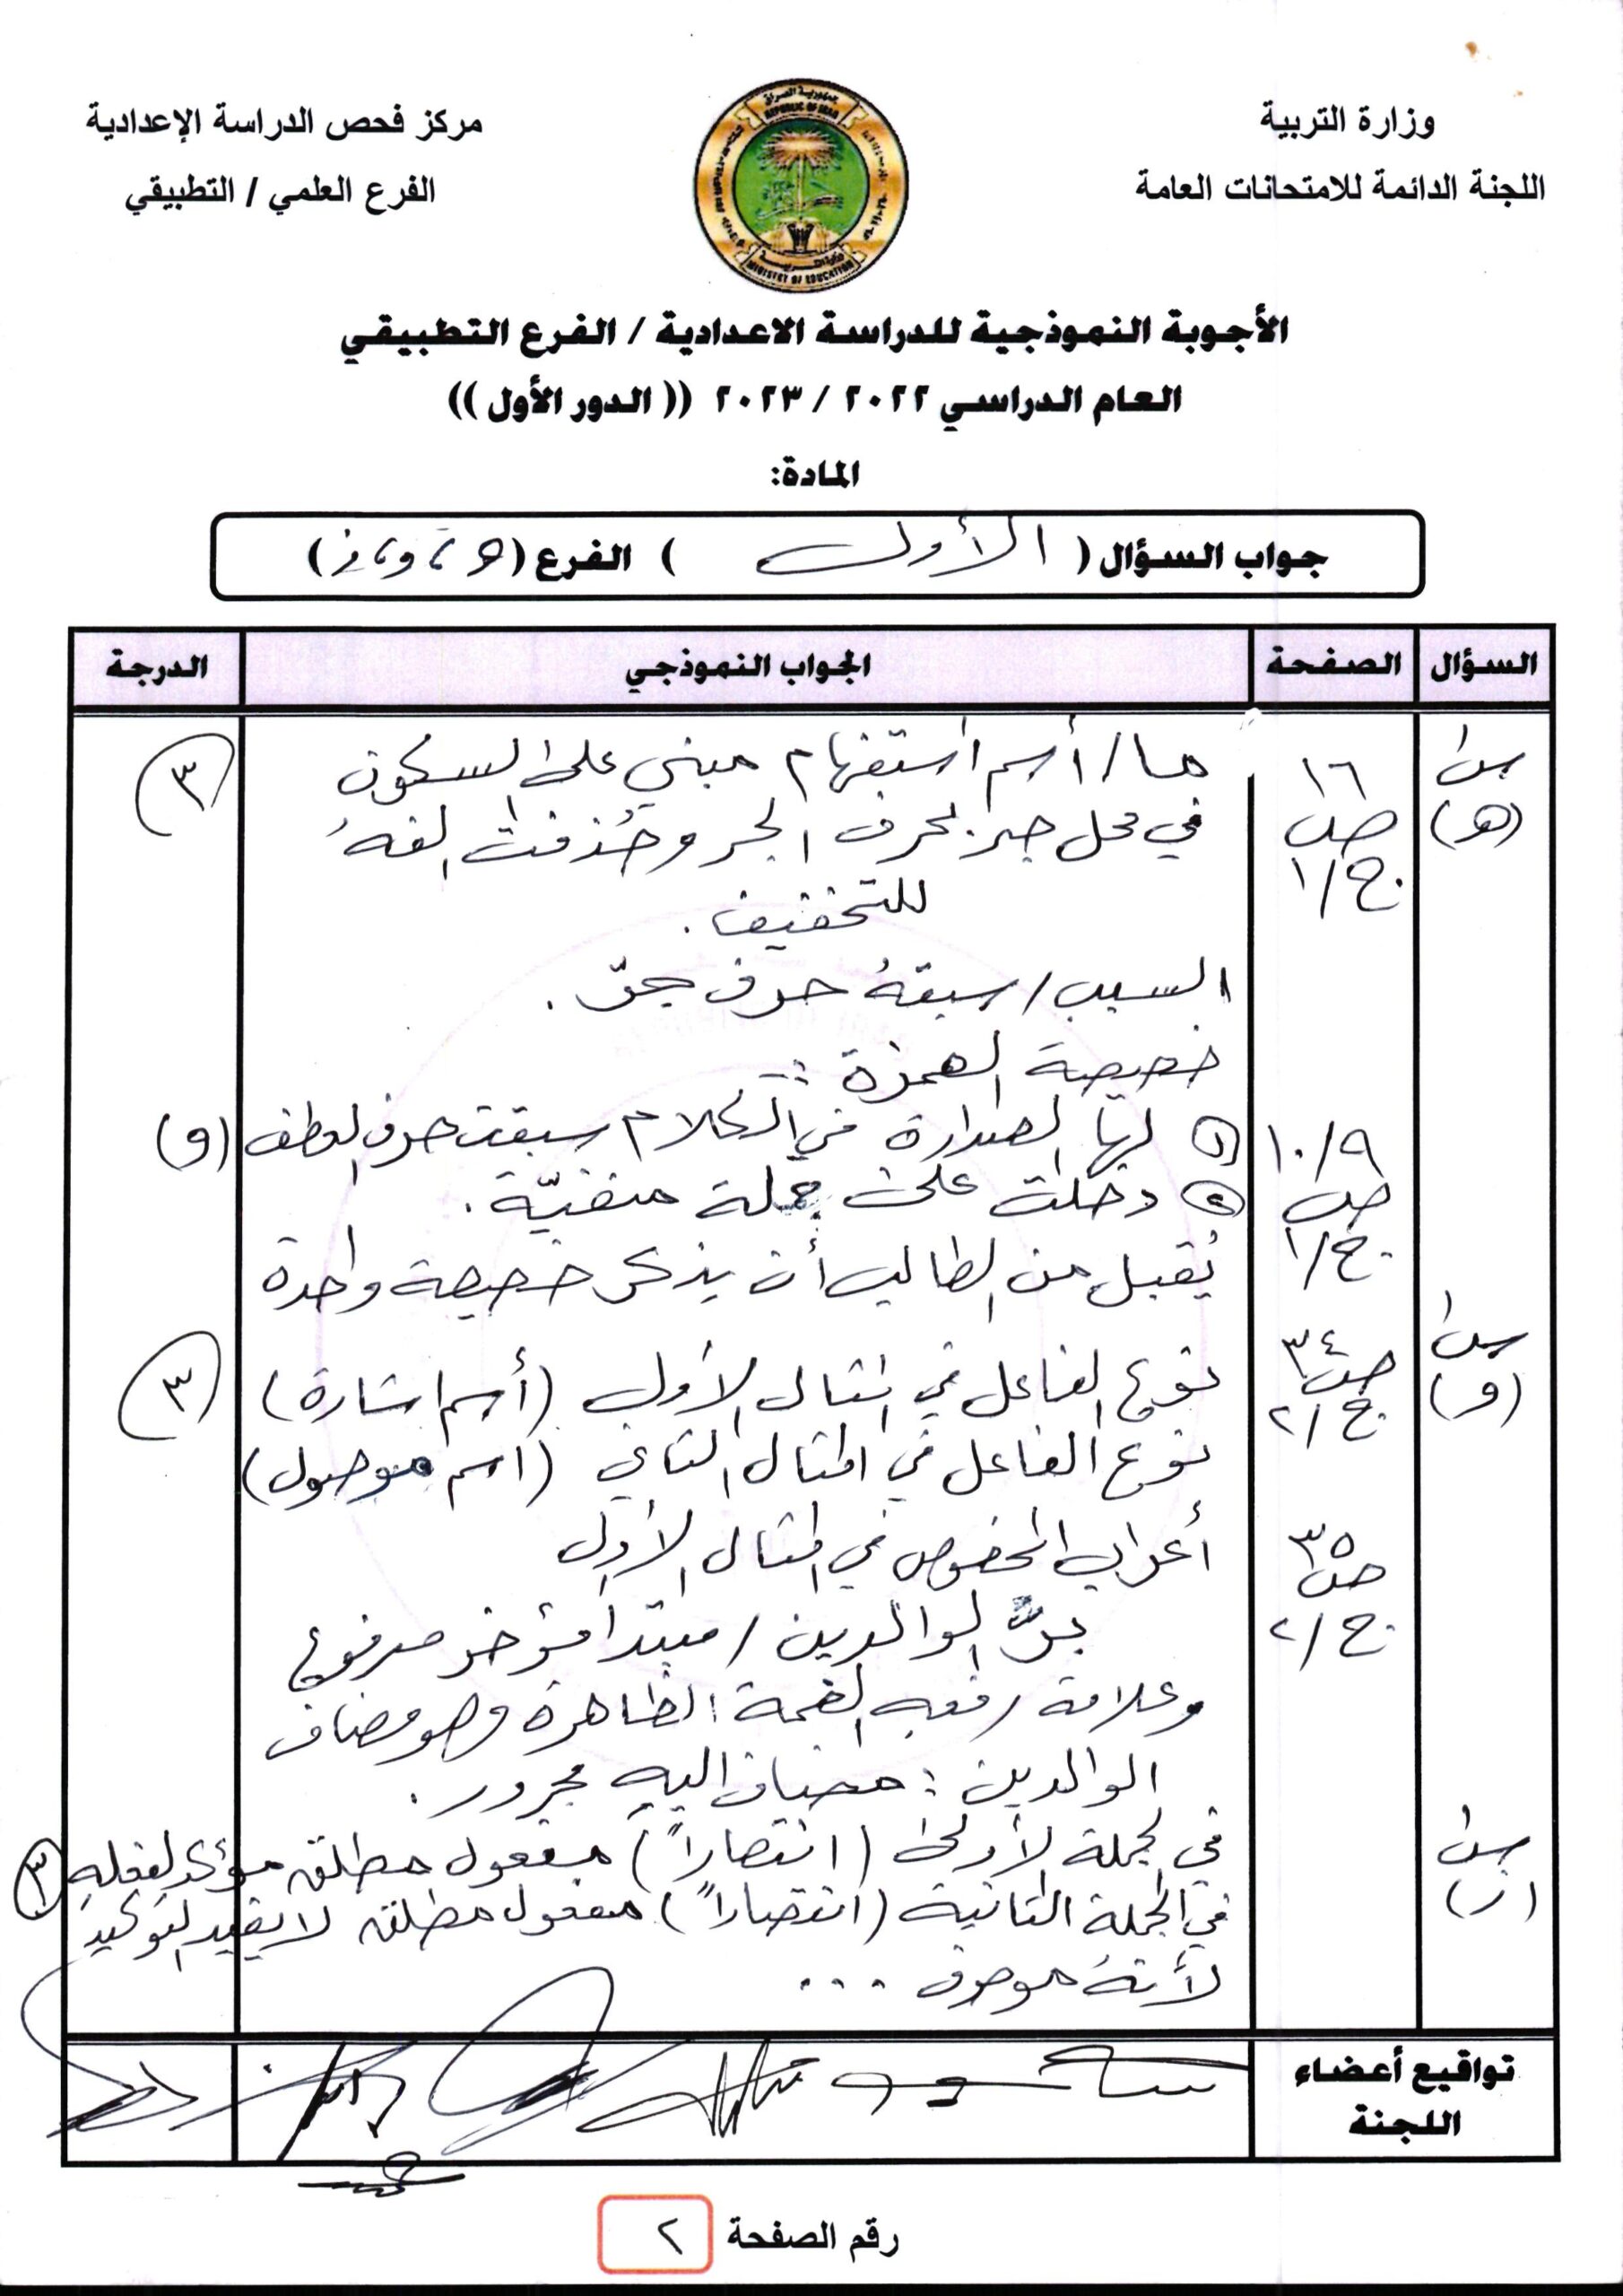 وزارة التربية
اللجنة الدائمة للامتحانات العامة
مركز فحص الدراسة الإعدادية
الفرع العلمي / التطبيقي
جمهورية العراق
REPUBLIC OF IRAQ
MINISTRY OF EDUCATION
الأجوبة النموذجية للدراسة الاعدادية / الفرع التطبيقي
العام الدراسي ٢٠٢٢ / ٢٠٢٣ (( الدور الأول ))
المادة:
جواب السؤال ( الأول ) الفرع ( هـ ، و ، ز )
السؤال الصفحة الجواب النموذجي الدرجة
س١ ١٦ ما / أسم استفهام مبني على السكون ٣
(هـ) ص في محل جر بحرف الجر وحُذفت الفهُ
ج/١ للتخفيف .
السبب / سبقهُ حرف جرّ .
خصيصة الهمزة :-
١٠/٩ ١ لها الصدارة في الكلام سبقت حرف العطف (و)
ص ٢ دخلت على جملة منفيّة .
ج/١ يُقبل من الطالب أن يذكر خصيصة واحدة
س١ ص٣٤ نوع الفاعل في المثال الأول (أسم اشارة) ٣
(و) ج/٢ نوع الفاعل في المثال الثاني (اسم موصول)
ص٣٥ أعراب المخصوص في المثال الأول
ج/٢ برُّ الوالدين / مبتدأ مؤخر مرفوع
وعلامة رفعه الضمة الظاهرة وهو مضاف
الوالدين : مضاف اليه مجرور .
س١ في الجملة الأولى (انتصاراً) مفعول مطلق مؤكد لفعله ٣
(ز) في الجملة الثانية (انتصاراً) مفعول مطلق لا يفيد التوكيد
لأنهُ موصوف ...
تواقيع أعضاء
اللجنة
رقم الصفحة ٢